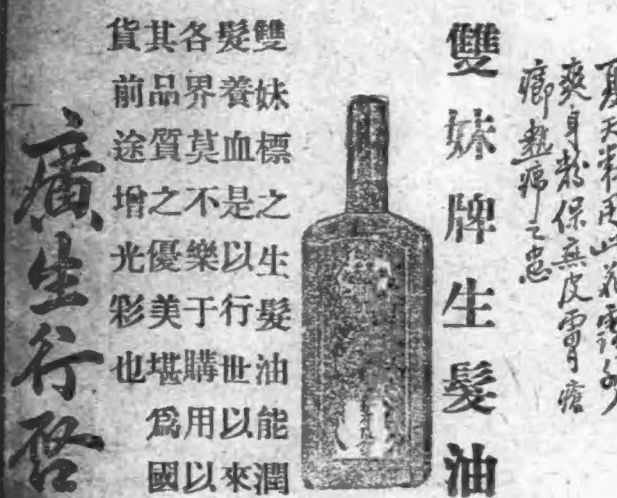 夏天常用此花露水
爽身粉保無皮膚瘡
癤熱痱之患
雙妹牌生髮油
雙妹標之生髮油能潤
髮養血是以行世以來
各界莫不樂于購用以
其品質之優美堪爲國
貨前途增光彩也
廣生行啓